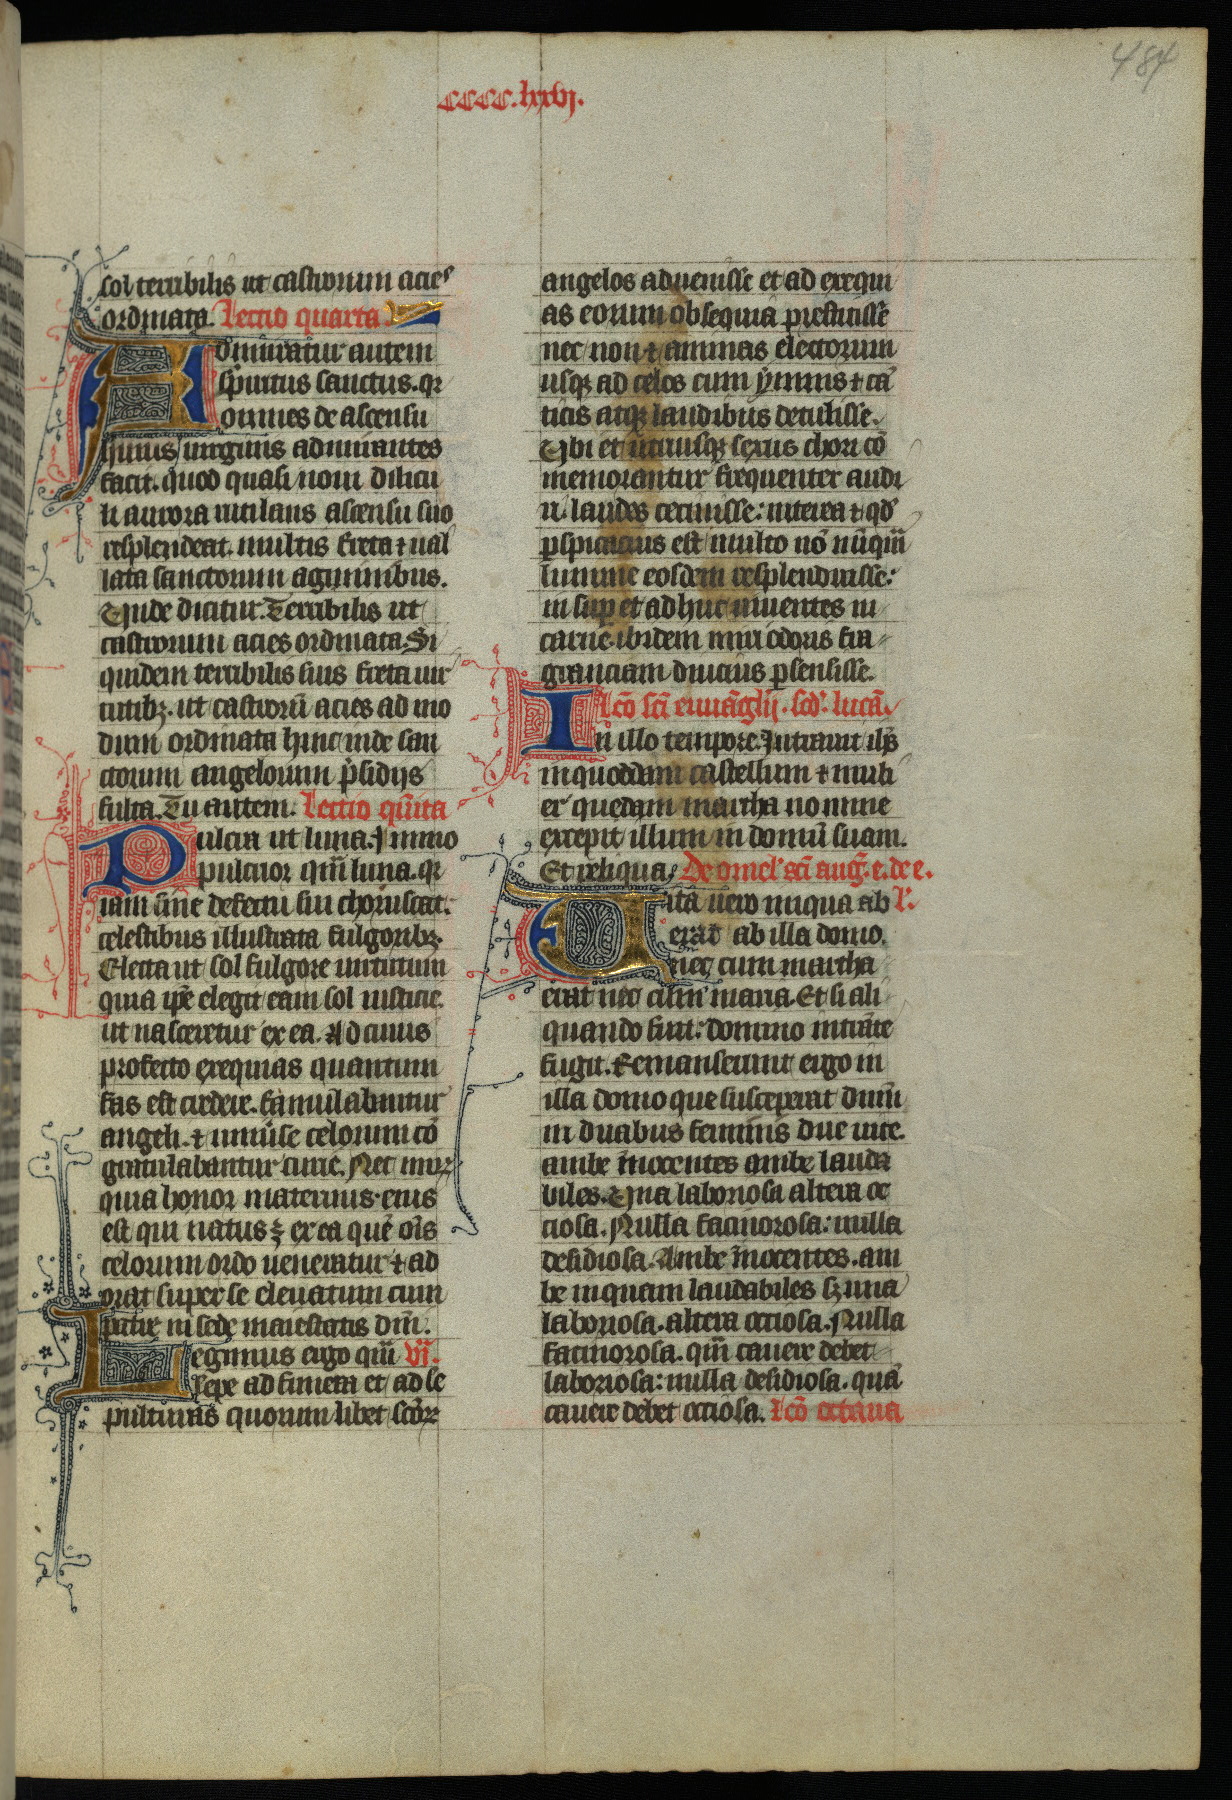 cccc.lxxvj.
484
sol terribilis ut castrorum acies
ordinata. Lectio quarta.
Admiratur autem
spiritus sanctus. qr
omnes de ascensu
huius uirginis admirantes
facit. quod quasi noui dilicu
li aurora rutilans ascensu suo
resplendeat. multis freta ⁊ ual
lata sanctorum agminibus.
Unde dicitur. Terribilis ut
castrorum acies ordinata. Si
quidem terribilis suis freta uir
tutibꝫ. ut castrorū acies ad mo
dum ordinata hinc inde san
ctorum angelorum p̄sidijs
fulta. Tu autem. Lectio qͥnta
Pulcra ut luna. Immo
pulcrior qm̄ luna. qr
iam sine defectu sui choruscat.
celestibus illustrata fulgoribꝫ.
Electa ut sol fulgore uirtutum
quia ip̄e elegit eam sol iusticie.
ut nasceretur ex ea. Ad cuius
profecto exequias quantum
fas est credere. famulabantur
angeli. ⁊ uniu̓se celorum cō
gratulabantur curie. Nec mirꝝ
quia honor maternus. eius
est qui natus ꝫ ex ea quē oīs
celorum ordo ueneratur ⁊ ad
orat super se eleuatum cum
patre in sede maiestatis dn̄i.
Legimus ergo qm̄ vj.
sepe ad funera et ad se
pulturas quorum libet scōꝝ
angelos aduenisse et ad exequi
as eorum obsequia prestitisse
nec non ⁊ animas electorum
usqꝫ ad celos cum ymnis ⁊ cā
ticis atqꝫ laudibus detulisse.
Ubi et utriusqꝫ sexus chori cō
memorantur frequenter audi
ti. laudes cecinisse: interea ⁊ qd̄
ꝑspicacius est multo nō nūqm̄
lumine eosdem resplenduisse:
in suꝑ et adhuc uiuentes in
carne ibidem miri odoris fra
granciam diucius ꝑsensisse.
Lc̄o sc̄i euuāglij. scd̓. lucā.
In illo tempore. Intrauit ih̄s
in quoddam castellum ⁊ muli
er quedam martha nomine
excepit illum in domū suam.
Et reliqua. De omel' sc̄i aug̓. e. de e.
Uita uero iniqua ab l'.
erat ab illa domo.
nec cum martha
erat nec cum maria. Et si ali
quando fuit: domino intrāte
fugit. Remanserunt ergo in
illa domo que susceperat dnm̄
in duabus feminis due uite.
ambe inocentes ambe lauda
biles. Una laboriosa altera oc
ciosa. Nulla facinorosa: nulla
desidiosa. Ambe inocentes. am
be inquam laudabiles sꝫ una
laboriosa. altera occiosa. Nulla
facinorosa. qm̄ cauere debet
laboriosa: nulla desidiosa. quā
cauere debet occiosa. Lc̄o octaua